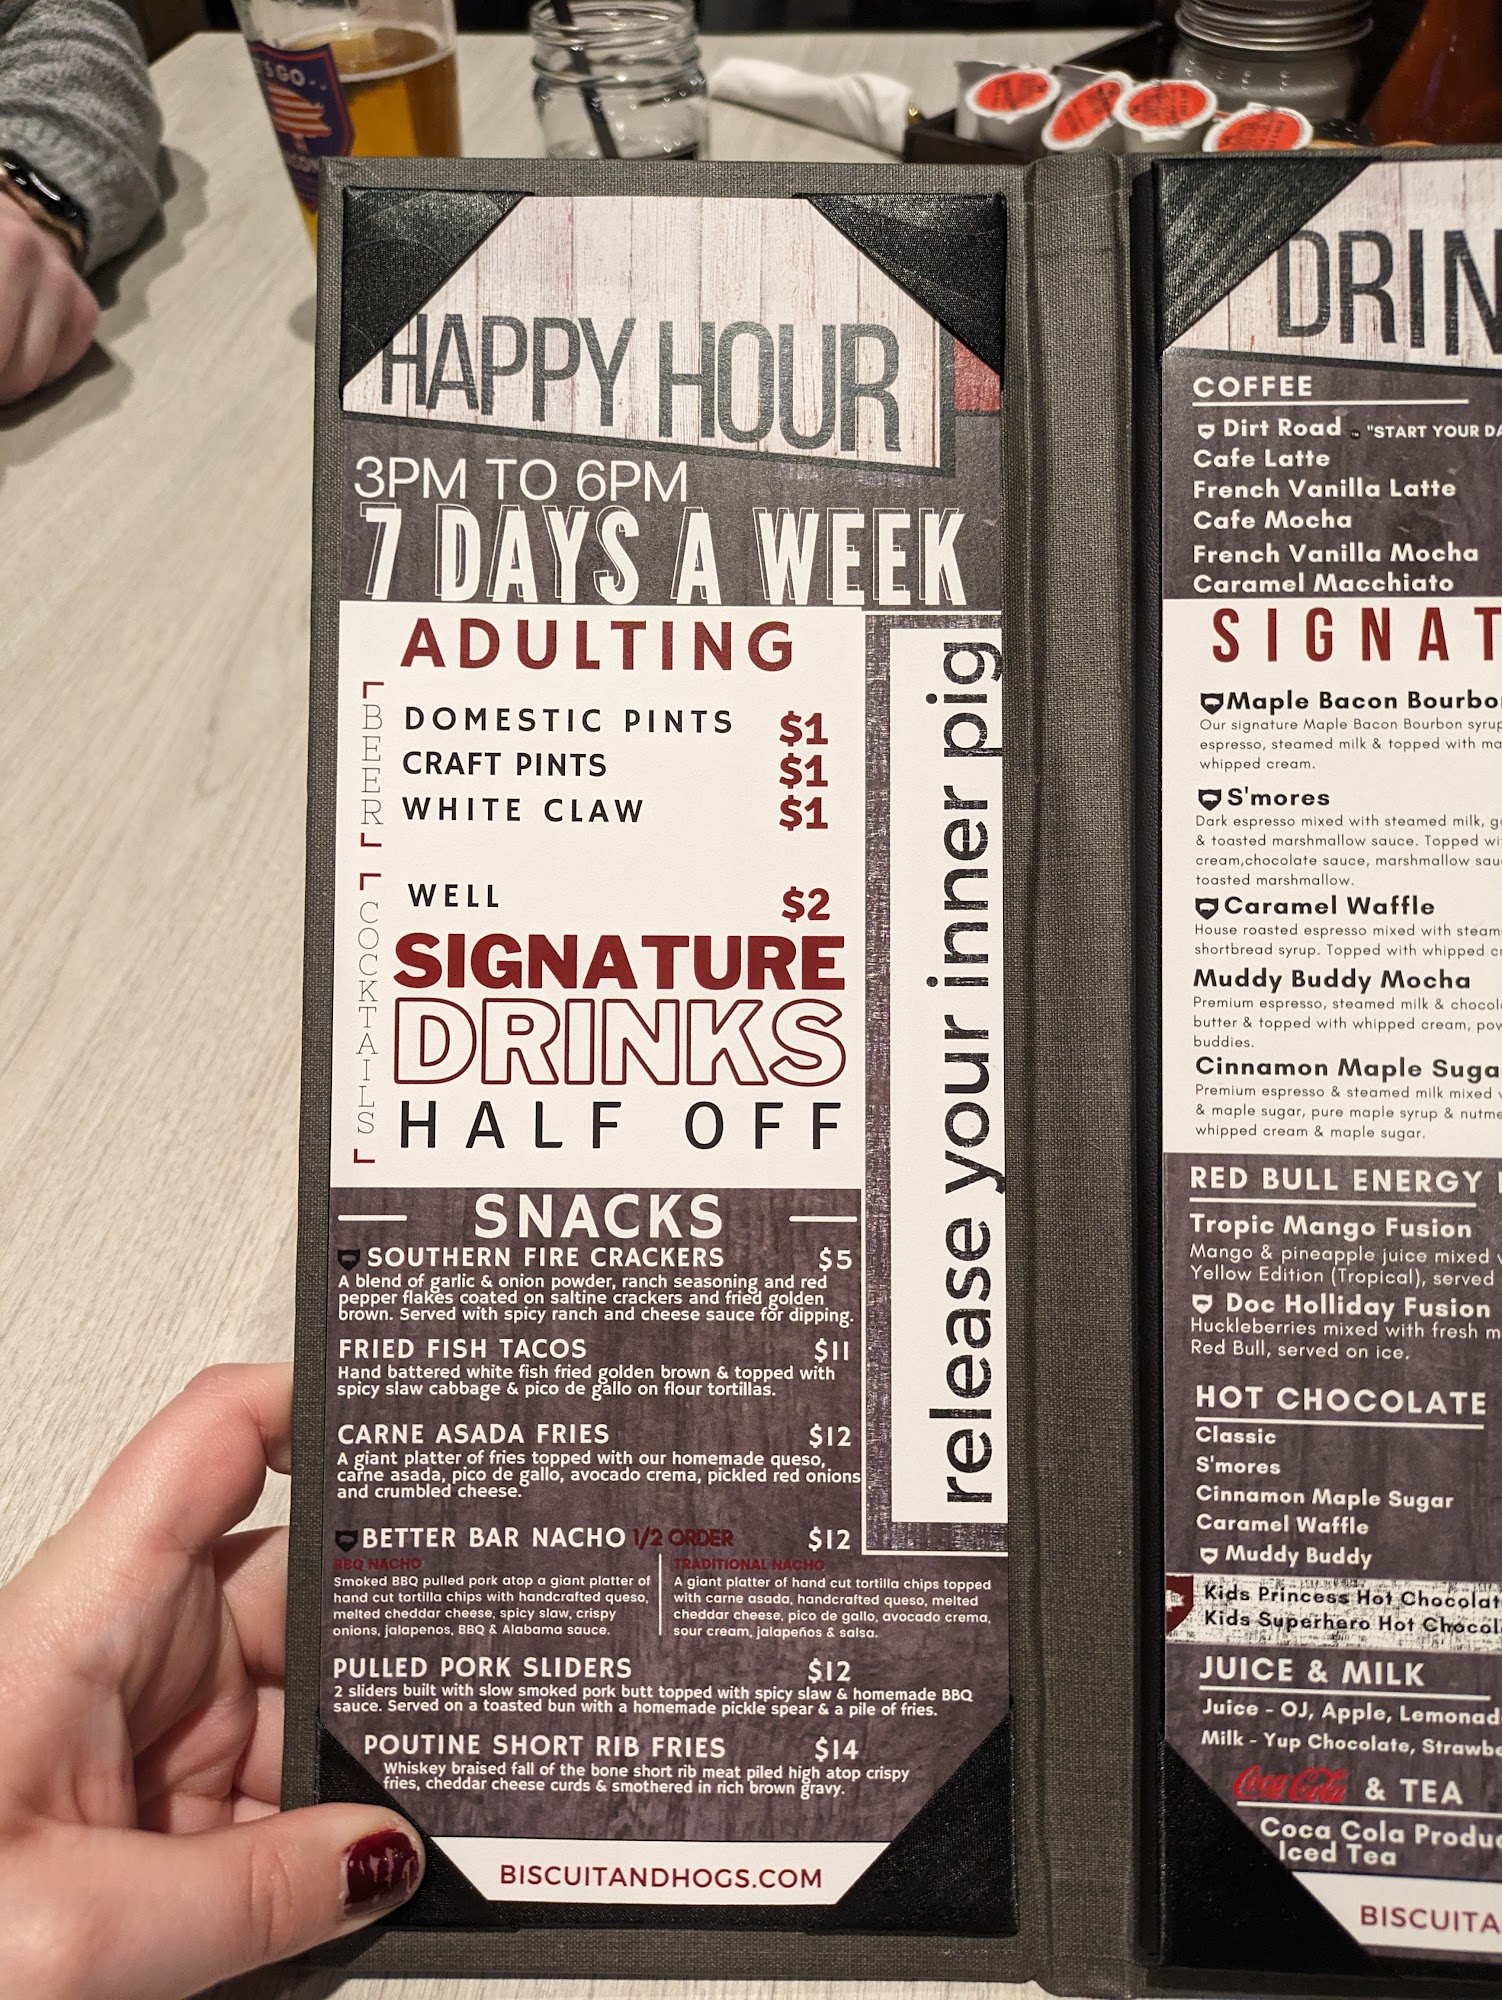 'S GO..
HAPPY HOUR
3PM TO 6PM
7 DAYS A WEEK
ADULTING
BEER
DOMESTIC PINTS $1
CRAFT PINTS $1
WHITE CLAW $1
COCKTAILS
WELL $2
SIGNATURE
DRINKS
HALF OFF
release your inner pig
SNACKS
SOUTHERN FIRE CRACKERS $5
A blend of garlic & onion powder, ranch seasoning and red
pepper flakes coated on saltine crackers and fried golden
brown. Served with spicy ranch and cheese sauce for dipping.
FRIED FISH TACOS $11
Hand battered white fish fried golden brown & topped with
spicy slaw cabbage & pico de gallo on flour tortillas.
CARNE ASADA FRIES $12
A giant platter of fries topped with our homemade queso,
carne asada, pico de gallo, avocado crema, pickled red onions
and crumbled cheese.
BETTER BAR NACHO 1/2 ORDER $12
BBQ NACHO
Smoked BBQ pulled pork atop a giant platter of
hand cut tortilla chips with handcrafted queso,
melted cheddar cheese, spicy slaw, crispy
onions, jalapenos, BBQ & Alabama sauce.
TRADITIONAL NACHO
A giant platter of hand cut tortilla chips topped
with carne asada, handcrafted queso, melted
cheddar cheese, pico de gallo, avocado crema,
sour cream, jalapeños & salsa.
PULLED PORK SLIDERS $12
2 sliders built with slow smoked pork butt topped with spicy slaw & homemade BBQ
sauce. Served on a toasted bun with a homemade pickle spear & a pile of fries.
POUTINE SHORT RIB FRIES $14
Whiskey braised fall of the bone short rib meat piled high atop crispy
fries, cheddar cheese curds & smothered in rich brown gravy.
BISCUITANDHOGS.COM
DRIN
COFFEE
Dirt Road "START YOUR DA
Cafe Latte
French Vanilla Latte
Cafe Mocha
French Vanilla Mocha
Caramel Macchiato
SIGNAT
Maple Bacon Bourbo
Our signature Maple Bacon Bourbon syrup
espresso, steamed milk & topped with ma
whipped cream.
S'mores
Dark espresso mixed with steamed milk, g
& toasted marshmallow sauce. Topped wi
cream,chocolate sauce, marshmallow sau
toasted marshmallow.
Caramel Waffle
House roasted espresso mixed with steam
shortbread syrup. Topped with whipped c
Muddy Buddy Mocha
Premium espresso, steamed milk & chocol
butter & topped with whipped cream, pow
buddies.
Cinnamon Maple Suga
Premium espresso & steamed milk mixed
& maple sugar, pure maple syrup & nutme
whipped cream & maple sugar.
RED BULL ENERGY
Tropic Mango Fusion
Mango & pineapple juice mixed
Yellow Edition (Tropical), served
Doc Holliday Fusion
Huckleberries mixed with fresh m
Red Bull, served on ice.
HOT CHOCOLATE
Classic
S'mores
Cinnamon Maple Sugar
Caramel Waffle
Muddy Buddy
Kids Princess Hot Chocolat
Kids Superhero Hot Chocol
JUICE & MILK
Juice - OJ, Apple, Lemonad
Milk - Yup Chocolate, Strawbe
Coca Cola & TEA
Coca Cola Produc
Iced Tea
BISCUITA